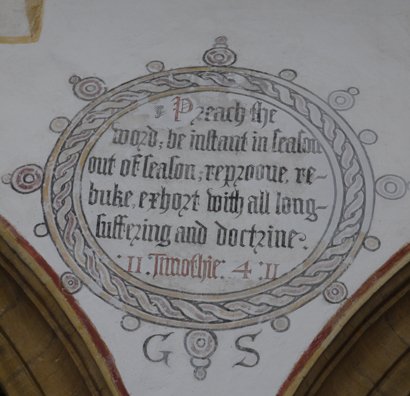 Preach the
word; be instant in season
out of season; reprooue, re-
buke, exhort with all long-
suffering and doctrine.
II. Timothie. 4. II
G S